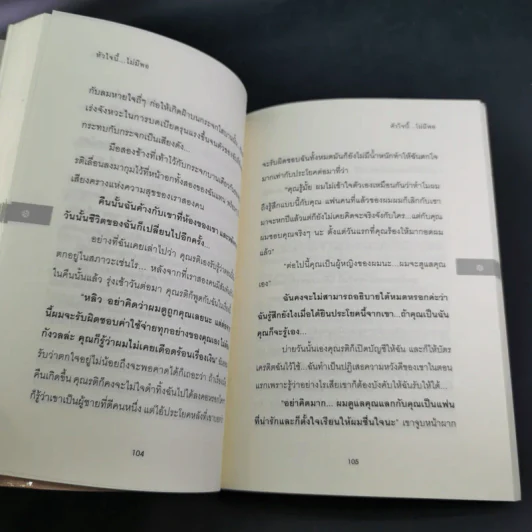 หัวใจนี้...ไม่มีพอ
กับลมหายใจถี่ๆ ก่อให้เกิดฝ้าบนกระจกใสบานนั้น
เร่งจังหวะในการบดเบียดรุนแรงขึ้นจนตัวของฉัน
กระทบกับกระจกเป็นเสียงดัง...
มือสองข้างที่เท้าไว้กับกระจกบานเดียวกัน
รติเลื่อนลงมากุมไว้ที่หน้าอกทั้งสองของฉันแทน
เสียงครางแห่งความสุขของเราสองคน
คืนนั้นฉันค้างกับเขาที่ห้องของเขา และหลังจาก
วันนั้นชีวิตของฉันก็เปลี่ยนไปอีกครั้ง...
อย่างที่ฉันเคยเล่าไปว่า คุณรติเองรับรู้ว่า
ตกอยู่ในสภาวะเช่นไร... หลังจากที่เราสองคนมี
ในคืนนั้นแล้ว รุ่งเช้าวันต่อมา คุณรติก็พูดกับฉันในวันนั้น
"หลิว อย่าคิดว่าผมดูถูกคุณเลยนะ แต่ต่อจาก
นี้ผมจะรับผิดชอบค่าใช้จ่ายทุกอย่างของคุณเอง ไม่ต้อง
กังวลล่ะ คุณก็รู้ว่าผมไม่เคยเดือดร้อนเรื่องเงิน"
รับว่าตกใจอยู่ไม่น้อยถึงจะพอคาดได้ก็เถอะว่า ถ้าเรื่อง
คืนเกิดขึ้น คุณรติคงจะไม่ใจดำทิ้งฉันไปได้ลงคอ
ก็รู้ว่าเขาเป็นผู้ชายที่ดีคนหนึ่ง แต่ไอ้ประโยคหลังที่เขาบอกว่า
104
หัวใจนี้...ไม่มีพอ
จะรับผิดชอบฉันทั้งหมดมันก็ยังไม่มีน้ำหนักทำให้ฉันตกใจ
มากเท่ากับประโยคต่อมาที่ว่า
"คุณรู้มั้ย ผมไม่เข้าใจตัวเองเหมือนกันว่าทำไมผม
ถึงรู้สึกแบบนี้กับคุณ แฟนคนที่แล้วของผมผมก็เลิกกับเขา
มาจะหกปีแล้วแต่ก็ยังไม่เคยคิดจะจริงจังกับใคร...แต่กับคุณ
ผมชอบคุณจริงๆ นะ ตั้งแต่วันแรกที่คุณร้องไห้มากอดผม
แล้ว"
"ต่อไปนี้คุณเป็นผู้หญิงของผมนะ...ผมจะดูแลคุณ
เอง"
ฉันคงจะไม่สามารถอธิบายได้หมดหรอกค่ะว่า
ฉันรู้สึกยังไงเมื่อได้ยินประโยคนี้จากเขา...ถ้าคุณเป็นฉัน
คุณก็จะรู้เอง...
บ่ายวันนั้นเองคุณรติก็เปิดบัญชีให้ฉัน และก็ให้บัตร
เครดิตฉันไว้ใช้... ฉันทำเป็นปฏิเสธความหวังดีของเขาในตอน
แรกเพราะรู้ว่าอย่างไรเสียเขาก็ต้องบังคับให้ฉันรับให้ได้...
"อย่าคิดมาก... ผมดูแลคุณแลกกับคุณเป็นแฟน
ที่น่ารักและก็ตั้งใจเรียนให้ผมชื่นใจนะ" เขาจูบหน้าผาก
105